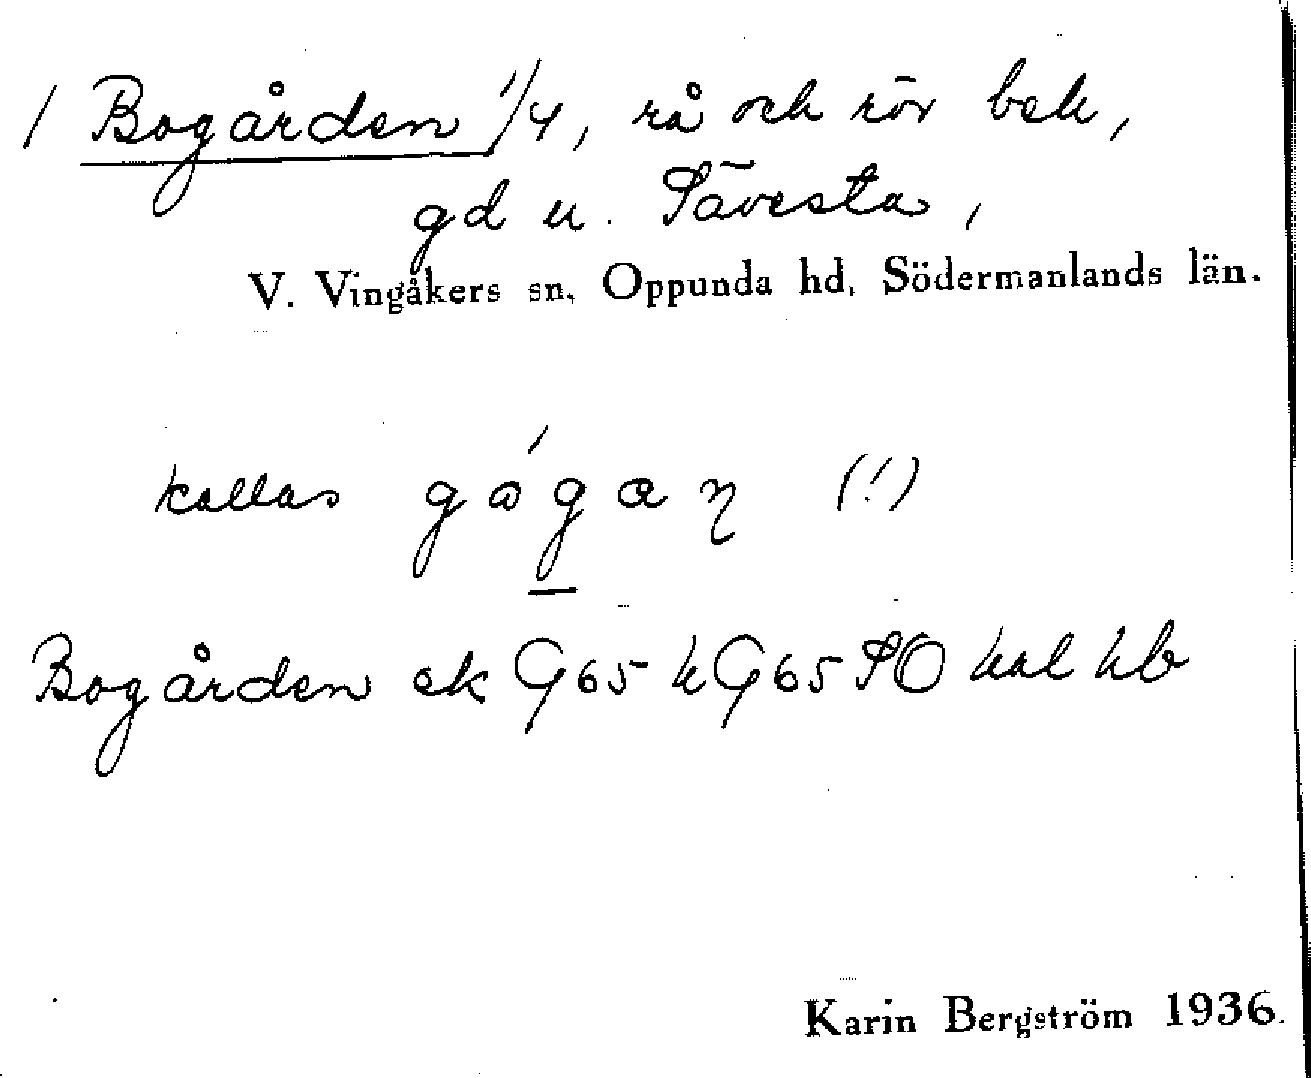 / Bogården 1/4, rå och rör bek,
gd u. Sävesta,
V. Vingåkers sn, Oppunda hd, Södermanlands län.
kallas (!)
Bogården ek G65 k G65 SO hal hb
Karin Bergström 1936.